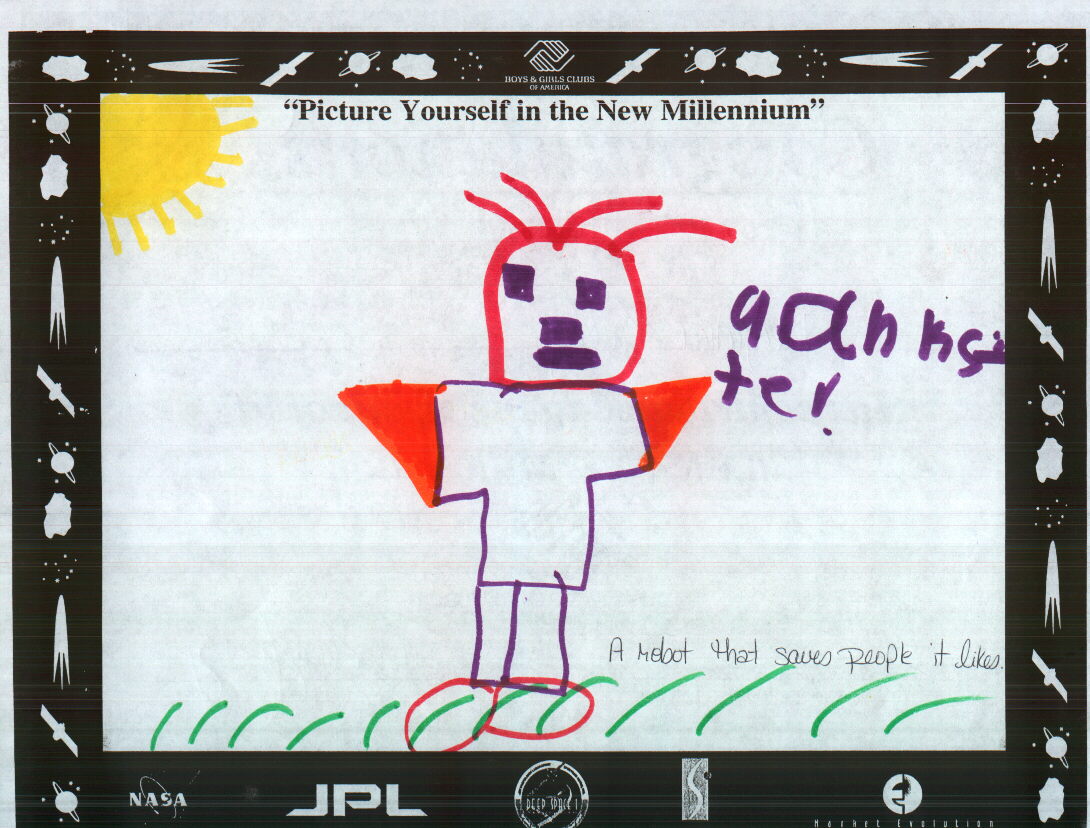 BOYS & GIRLS CLUBS
OF AMERICA
“Picture Yourself in the New Millennium”
ter!
A robot that saves people it likes.
NASA
JPL
DEEP SPACE 1
Market Evolution